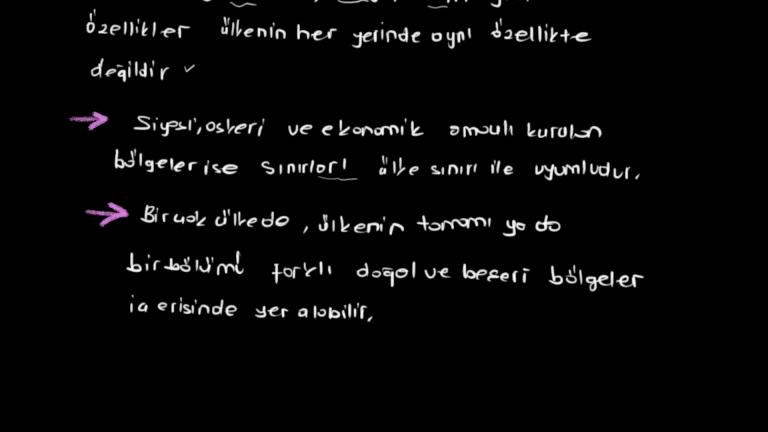 özellikler ülkenin her yerinde aynı özellikte
değildir ✓
→ Siyasi, askeri ve ekonomik amaçlı kurulan
bölgeler ise sınırları ülke sınırı ile uyumludur.
→ Birçok ülkede, ülkenin tamamı ya da
bir bölümü farklı doğal ve beşeri bölgeler
içerisinde yer alabilir.